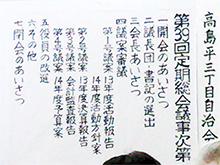 高島平三丁目自治会
第39回定期総会議事次第
一 開会のあいさつ
二 議長団・書記の選出
三 会長あいさつ
四 議案審議
第1号議案 13年度活動報告
第2号議案 14年度活動方針案
第3号議案 13年度決算報告
第4号議案 会計監査報告
第5号議案 14年度予算案
五 役員の改選
六 その他
七 閉会のあいさつ